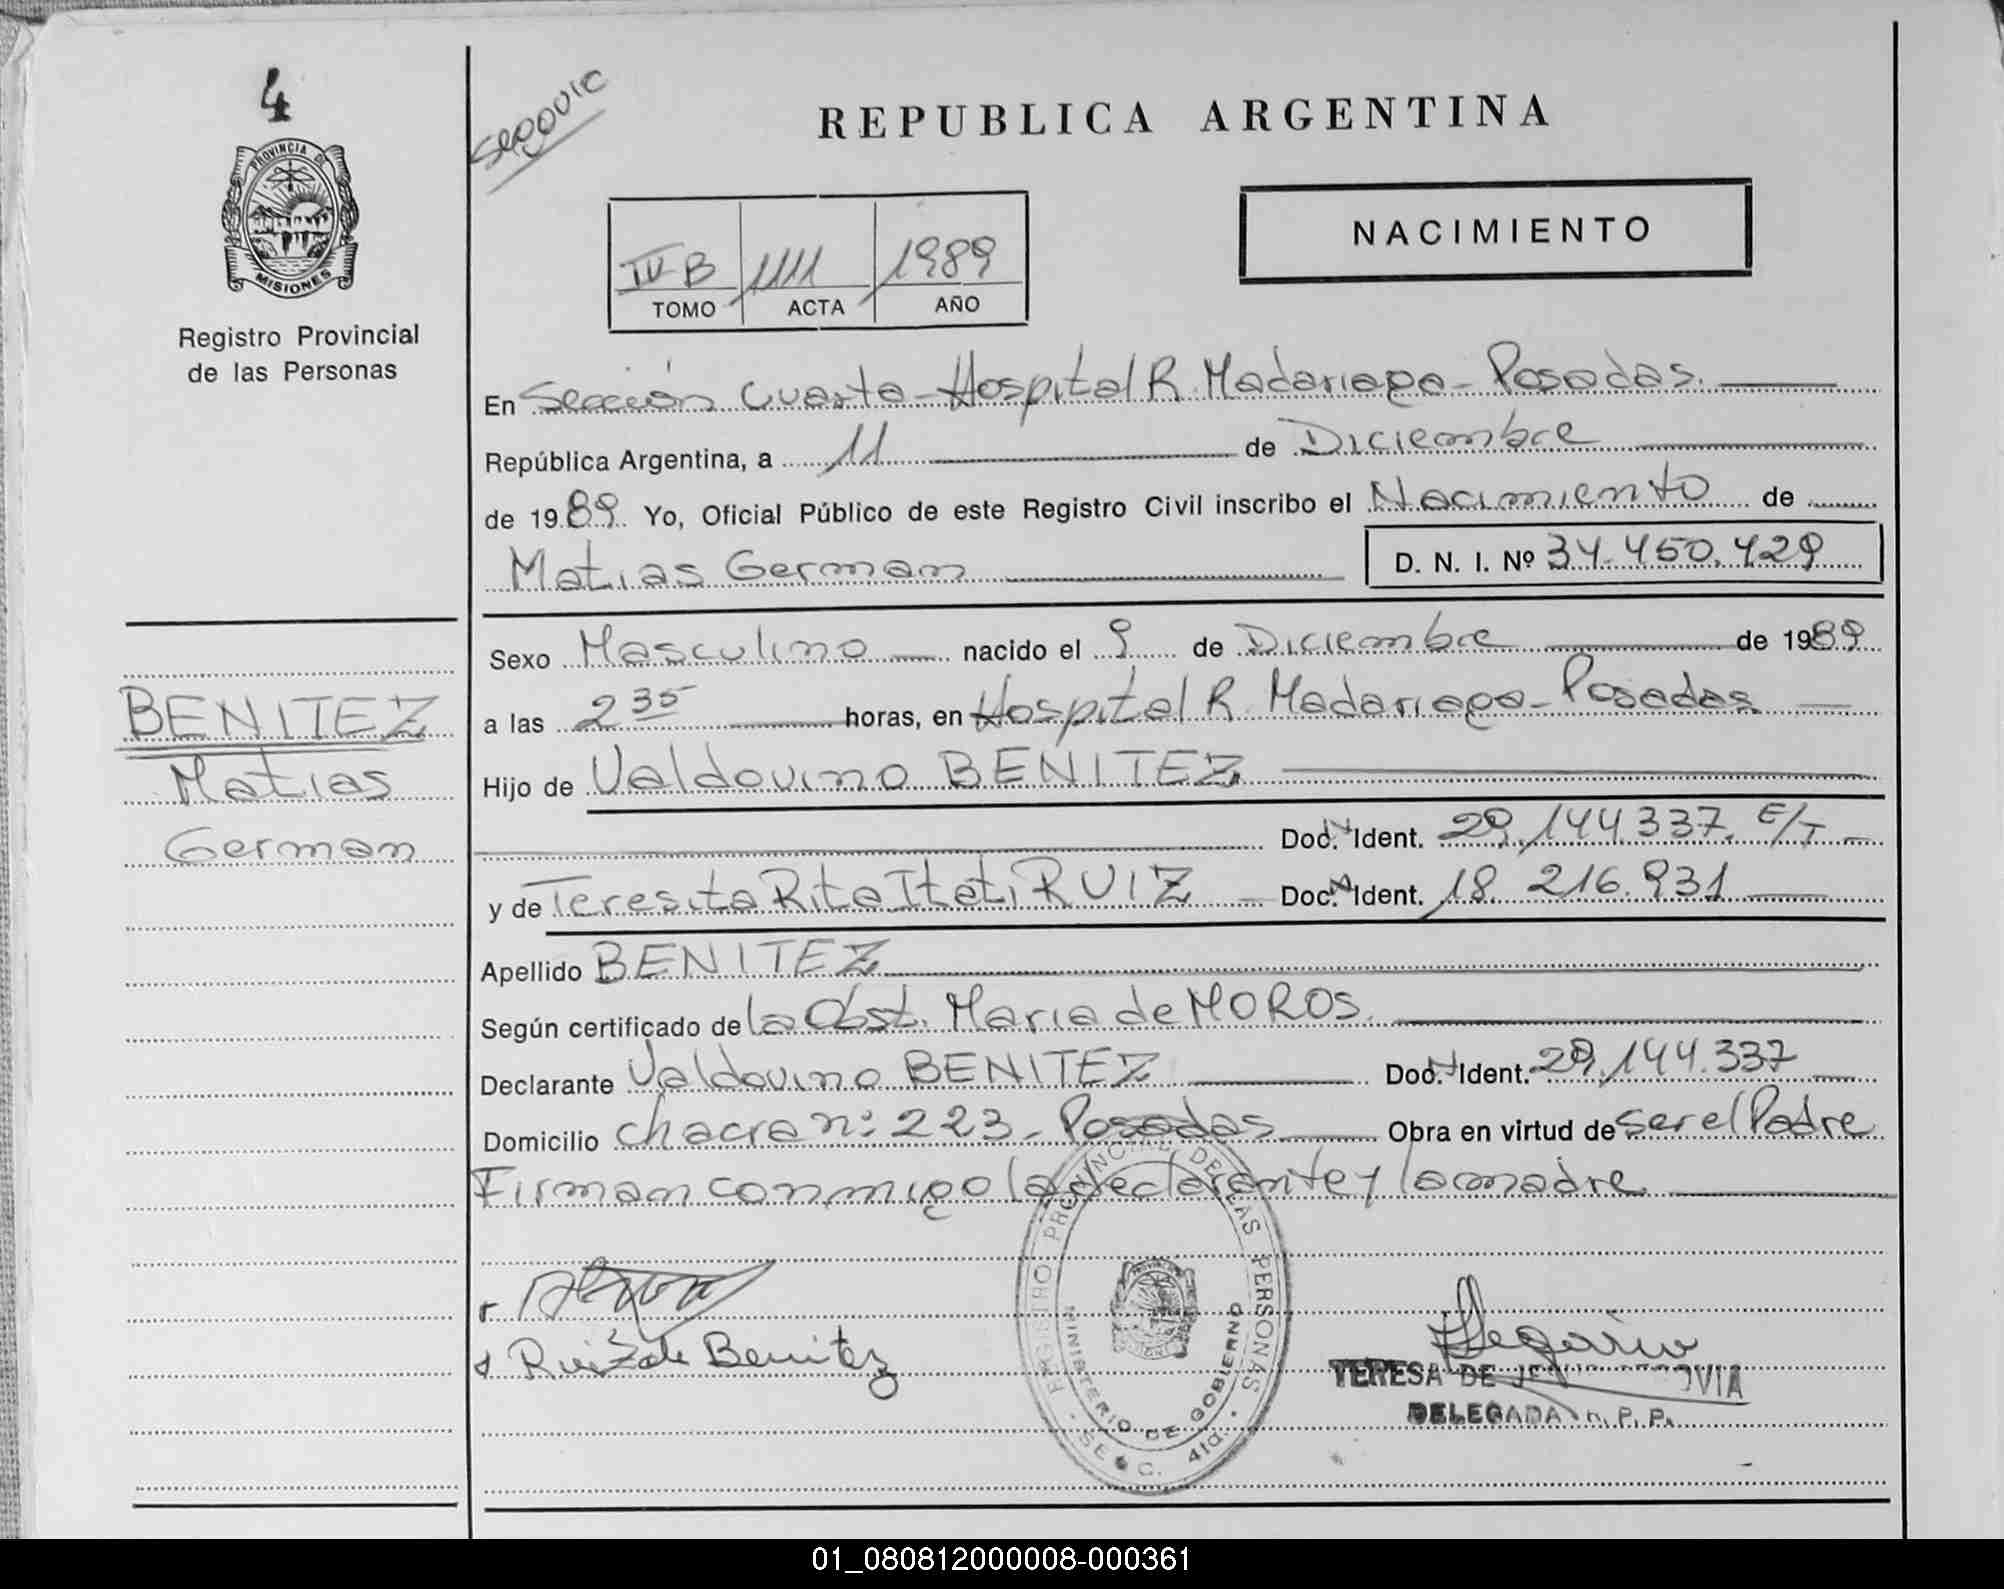 4
Segovic
REPUBLICA ARGENTINA
PROVINCIA DE
MISIONES
NACIMIENTO
IV-B 1111 1989
TOMO ACTA AÑO
Registro Provincial
de las Personas
En Sección Cuarta - Hospital R. Madariaga - Posadas.
República Argentina, a 11 de Diciembre
de 1989. Yo, Oficial Público de este Registro Civil inscribo el Nacimiento de
Matias German D. N. I. Nº 34.450.429
Sexo Masculino nacido el 9 de Diciembre de 1989
a las 2 35 horas, en Hospital R. Madariaga - Posadas
BENITEZ
Matias
German
Hijo de Valdovino BENITEZ
Doc. Ident. 29.144.337. E/T
y de Teresita Rita Itati RUIZ Doc. Ident. 18.216.931
Apellido BENITEZ
Según certificado de la Obst. Maria de MOROS.
Declarante Valdovino BENITEZ Doc. Ident. 29.144.337
Domicilio chacra nº: 223 - Posadas Obra en virtud de ser el Padre
Firman conmigo la declarante y la madre
Ruiz de Benitez
REGISTRO PROVINCIAL DE LAS PERSONAS
MINISTERIO DE GOBIERNO
SEC. 4ta.
TERESA DE
OVIA
DELEGADA R. P. P.
01_080812000008-000361